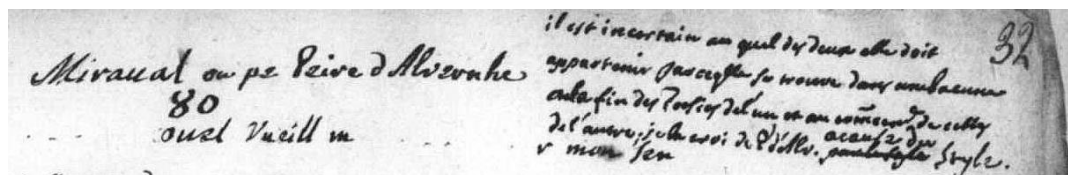 Miraual ou pe Peire d Alvernhe
80
ousl Vueill m
il est incertain au quel des deux elle doit
appartenir parcequelle se trouve dans une lacune
a la fin des Poesies de l'un et au comenc.t de celles
de l'autre. je la croi de P. d'Alv. a cause du style.
v mon Sen
32